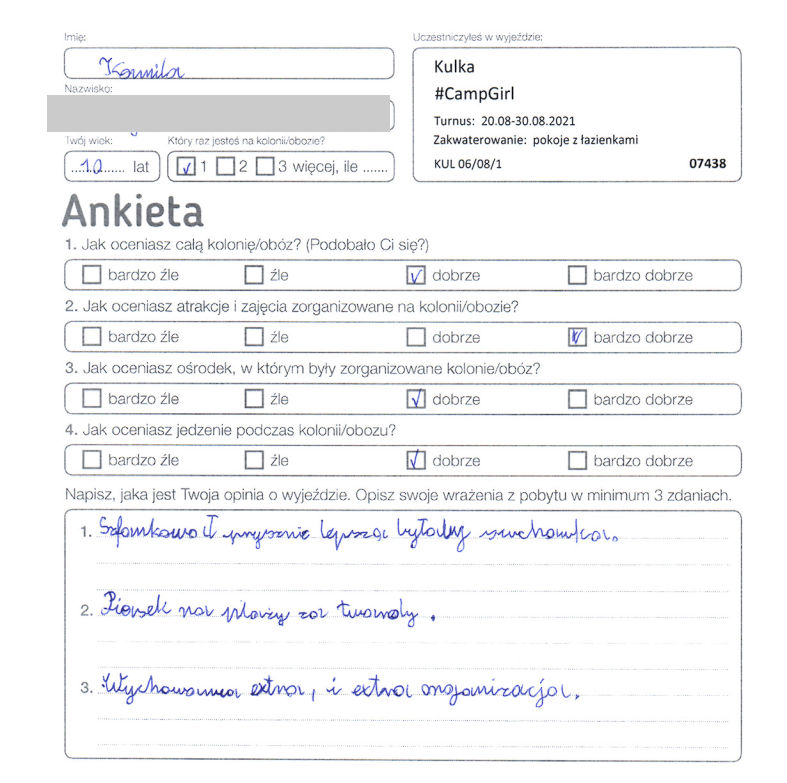 Imię:
Kamila
Nazwisko:
Twój wiek:
Który raz jesteś na kolonii/obozie?
....10...... lat
1 2 3 więcej, ile .......
Uczestniczyłeś w wyjeździe:
Kulka
#CampGirl
Turnus: 20.08-30.08.2021
Zakwaterowanie: pokoje z łazienkami
KUL 06/08/1 07438
Ankieta
1. Jak oceniasz całą kolonię/obóz? (Podobało Ci się?)
bardzo źle źle dobrze bardzo dobrze
2. Jak oceniasz atrakcje i zajęcia zorganizowane na kolonii/obozie?
bardzo źle źle dobrze bardzo dobrze
3. Jak oceniasz ośrodek, w którym były zorganizowane kolonie/obóz?
bardzo źle źle dobrze bardzo dobrze
4. Jak oceniasz jedzenie podczas kolonii/obozu?
bardzo źle źle dobrze bardzo dobrze
Napisz, jaka jest Twoja opinia o wyjeździe. Opisz swoje wrażenia z pobytu w minimum 3 zdaniach.
1. prysznic lepsza byłaby słuchawka.
2. Piasek na plaży za twardy.
3. Wychowawca extra, i extra organizacja.